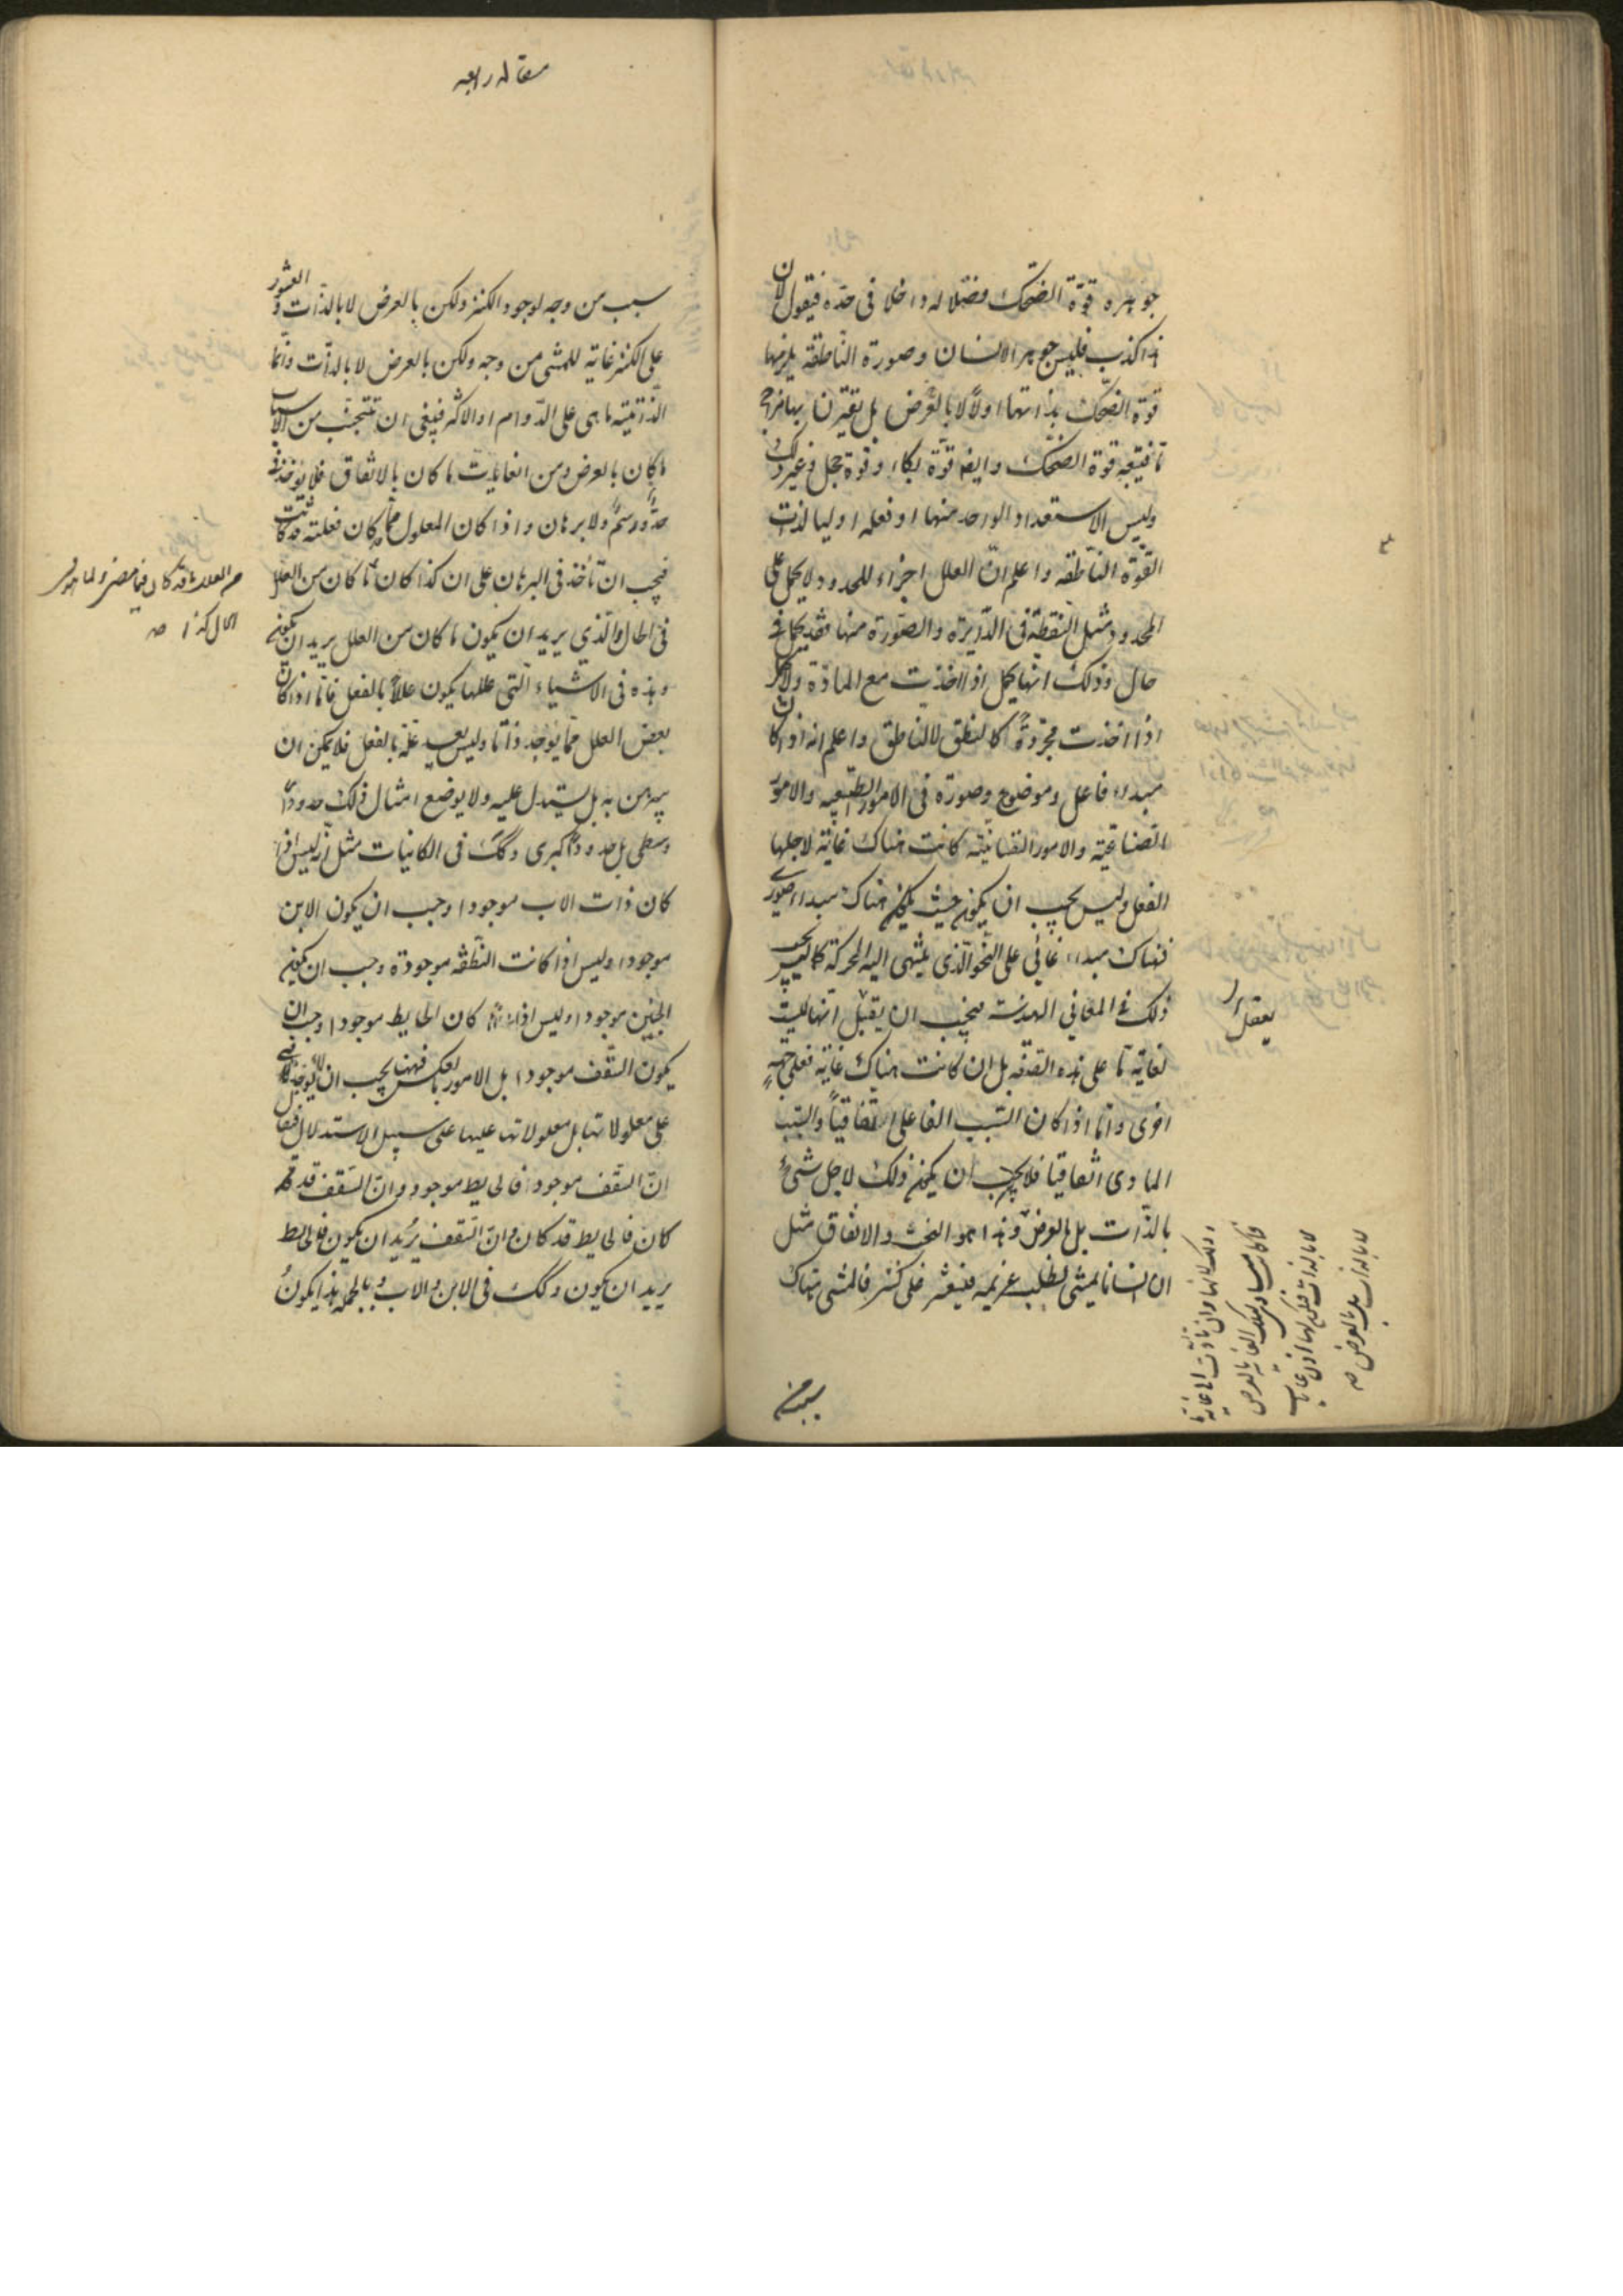 جوهره قوّة الضحك فصلا له داخلا فى حدّه فيقول لان
هذا كذب فليس جوهر الانسان وصورة الناطقه يلزمها
قوة الضحك بذاتها اولاً لا بالعرض بل يقترن بها مزاج
ما فيتبعه قوة الضحك وايضا قوّة بكاء وقوة خجل وغير ذلك
وليس الاستعداد الواحد منها او فعله اوليا لذات
القوّة الناطقه واعلم انّ العلل اجزاء للحدود ولا يحمل على
المحدود مثل النقطة فى الدّايرة والصّورة منها فقد يحمل فى
حال وذلك انها يحمل اذا اخذت مع المادّة ولا يحمل
اذا اخذت مجرّدةً كالنطق لا الناطق واعلم انه اذا كان
مبداء فاعل وموضوع وصورة فى الامور الطبيعيه والامور
الصّناعيّه والامور النفسانيّه كانت هناك غايّة لاجلها
الفعل وليس يجب ان يكون حيث يكون هناك مبداء صورى
فهناك مبداء غائى على النحو الذى ينتهى اليه الحركة
ذلك فى المعانى الهندسيّه فيجب ان يقبل انها ليست
لغاية ما على هذه الصّفه بل ان كانت هناك غاية فعلى جهةٍ
اخرى وامّا اذا كان السّبب الفاعلى اتّفاقياً والسّبب
المادى اتفاقيا فلا يجب ان يكون ذلك لاجل شئ
بالذّات بل بالعرض وهذا هو البخت والاتفاق مثل
ان انسانا يمشى لطلب غريمه فيعثر على كنز فالمشى هناك
سبب من
يعقل
لا بالذات بل بالعرض صه
مقاله رابعه
سبب من وجه لوجود الكنز ولكن بالعرض لا بالذّات والعثور
على الكنز غاية للمشى من وجه ولكن بالعرض لا بالذّات وانّما
الذّاتيّة ما هى على الدّوام او الاكثر فينبغى ان تتجنّب من الاسباب
ما كان بالعرض ومن الغايات ما كان بالاتّفاق فلا يؤخذ فى
حدّ ورسم ولا برهان واذا كان المعلول مما كان فعلته قد كانت
فيجب ان تأخذ فى البرهان على ان كذا كان ما كان من العلل
فى الحال والّذي يريد ان يكون ما كان من العلل يريد ان يكون
وهذه فى الاشياء الّتى عللها يكون عللاً بالفعل فامّا اذا كان
بعض العلل ممّا يوجد ذاتا وليس بعد علّة بالفعل فلا يمكن ان
يبرهن به بل يستدل عليه ولا يوضع امثال ذلك حدودا
وسطى بل حدودا كبرى وكك فى الكائنات مثل انّه ليس اذا
كان ذات الاب موجودا وجب ان يكون الابن
موجودا وليس اذا كانت النّطفه موجودة وجب ان يكون
الجنين موجودا وليس اذا كان الحايط موجودا وجب ان
يكون السّقف موجودا بل الامور بالعكس فههنا يجب ان لا يؤخذ
على معلولاتها بل معلولاتها عليها على سبيل الاستدلال فيقال
انّ السّقف موجود فالحايط موجود وانّ السّقف قد
كان فالحايط قد كان وانّ السّقف يريد ان يكون فالحايط
يريد ان يكون وكك فى الابن والاب وبالجمله هذا يكون